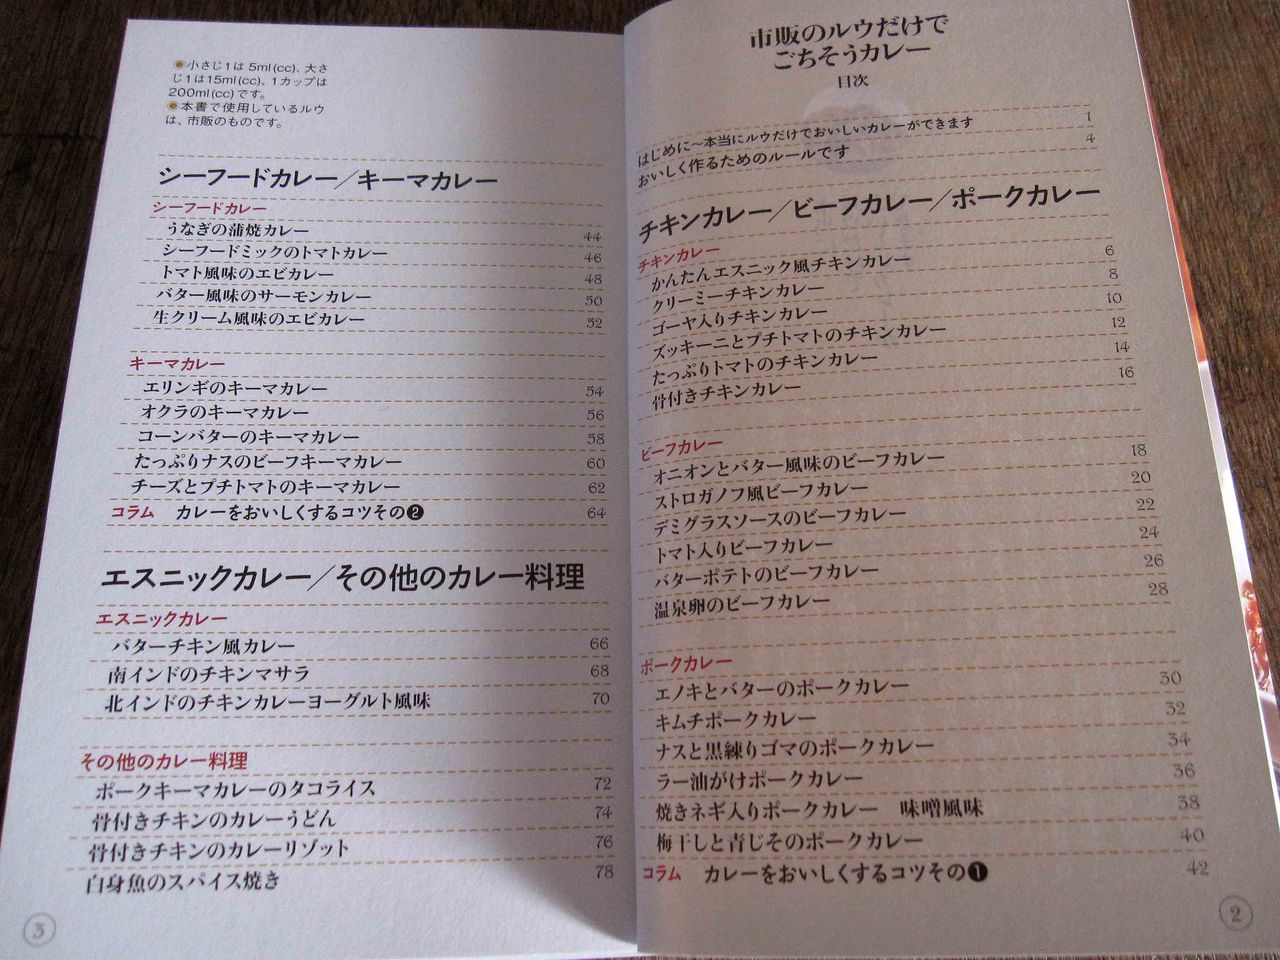 市販のルウだけで
ごちそうカレー
目次
はじめに~本当にルウだけでおいしいカレーができます 1
おいしく作るためのルールです 4
チキンカレー／ビーフカレー／ポークカレー
チキンカレー
かんたんエスニック風チキンカレー 6
クリーミーチキンカレー 8
ゴーヤ入りチキンカレー 10
ズッキーニとプチトマトのチキンカレー 12
たっぷりトマトのチキンカレー 14
骨付きチキンカレー 16
ビーフカレー
オニオンとバター風味のビーフカレー 18
ストロガノフ風ビーフカレー 20
デミグラスソースのビーフカレー 22
トマト入りビーフカレー 24
バターポテトのビーフカレー 26
温泉卵のビーフカレー 28
ポークカレー
エノキとバターのポークカレー 30
キムチポークカレー 32
ナスと黒練りゴマのポークカレー 34
ラー油がけポークカレー 36
焼きネギ入りポークカレー 味噌風味 38
梅干しと青じそのポークカレー 40
コラム カレーをおいしくするコツその❶ 42
2
●小さじ1は5ml(cc)、大さ
じ1は15ml(cc)、1カップは
200ml(cc)です。
●本書で使用しているルウ
は、市販のものです。
シーフードカレー／キーマカレー
シーフードカレー
うなぎの蒲焼カレー 44
シーフードミックのトマトカレー 46
トマト風味のエビカレー 48
バター風味のサーモンカレー 50
生クリーム風味のエビカレー 52
キーマカレー
エリンギのキーマカレー 54
オクラのキーマカレー 56
コーンバターのキーマカレー 58
たっぷりナスのビーフキーマカレー 60
チーズとプチトマトのキーマカレー 62
コラム カレーをおいしくするコツその❷ 64
エスニックカレー／その他のカレー料理
エスニックカレー
バターチキン風カレー 66
南インドのチキンマサラ 68
北インドのチキンカレーヨーグルト風味 70
その他のカレー料理
ポークキーマカレーのタコライス 72
骨付きチキンのカレーうどん 74
骨付きチキンのカレーリゾット 76
白身魚のスパイス焼き 78
3